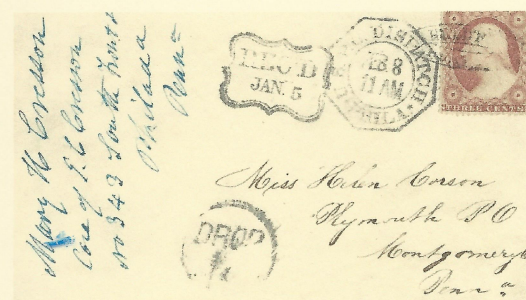 Mary H Cresson
Care of J. C Cresson
No 343 South
Philada
Penn
REC'D
JAN. 5
DISPATCH
FEB. 8
11 AM
THREE CENTS
Miss Helen Corson
Plymouth P O
Montgomery
Penn a
DROP